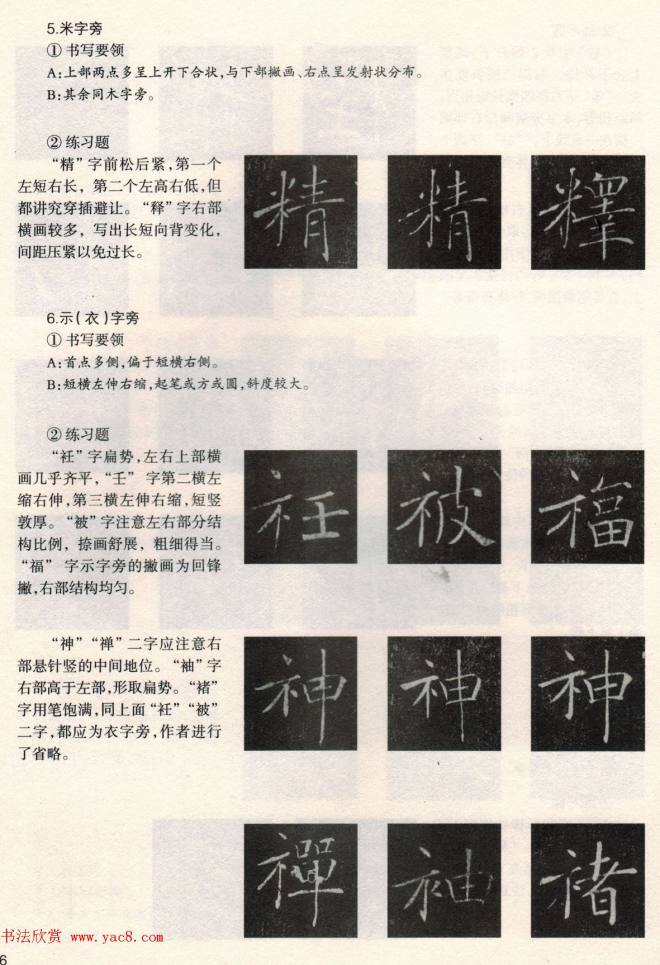 5.米字旁
① 书写要领
A:上部两点多呈上开下合状,与下部撇画、右点呈发射状分布。
B:其余同木字旁。
② 练习题
“精”字前松后紧,第一个
左短右长，第二个左高右低,但
都讲究穿插避让。“释”字右部
横画较多，写出长短向背变化,
间距压紧以免过长。
精 精 釋
6.示(衣)字旁
① 书写要领
A:首点多侧,偏于短横右侧。
B:短横左伸右缩,起笔或方或圆,斜度较大。
② 练习题
“衽”字扁势,左右上部横
画几乎齐平,“壬” 字第二横左
缩右伸,第三横左伸右缩,短竖
敦厚。“被”字注意左右部分结
构比例，捺画舒展，粗细得当。
“福” 字示字旁的撇画为回锋
撇,右部结构均匀。
衽 被 福
“神”“禅”二字应注意右
部悬针竖的中间地位。“袖”字
右部高于左部,形取扁势。“褚”
字用笔饱满,同上面“衽”“被”
二字,都应为衣字旁,作者进行
了省略。
神 神 神
禪 袖 褚
书法欣赏 www.yac8.com
6